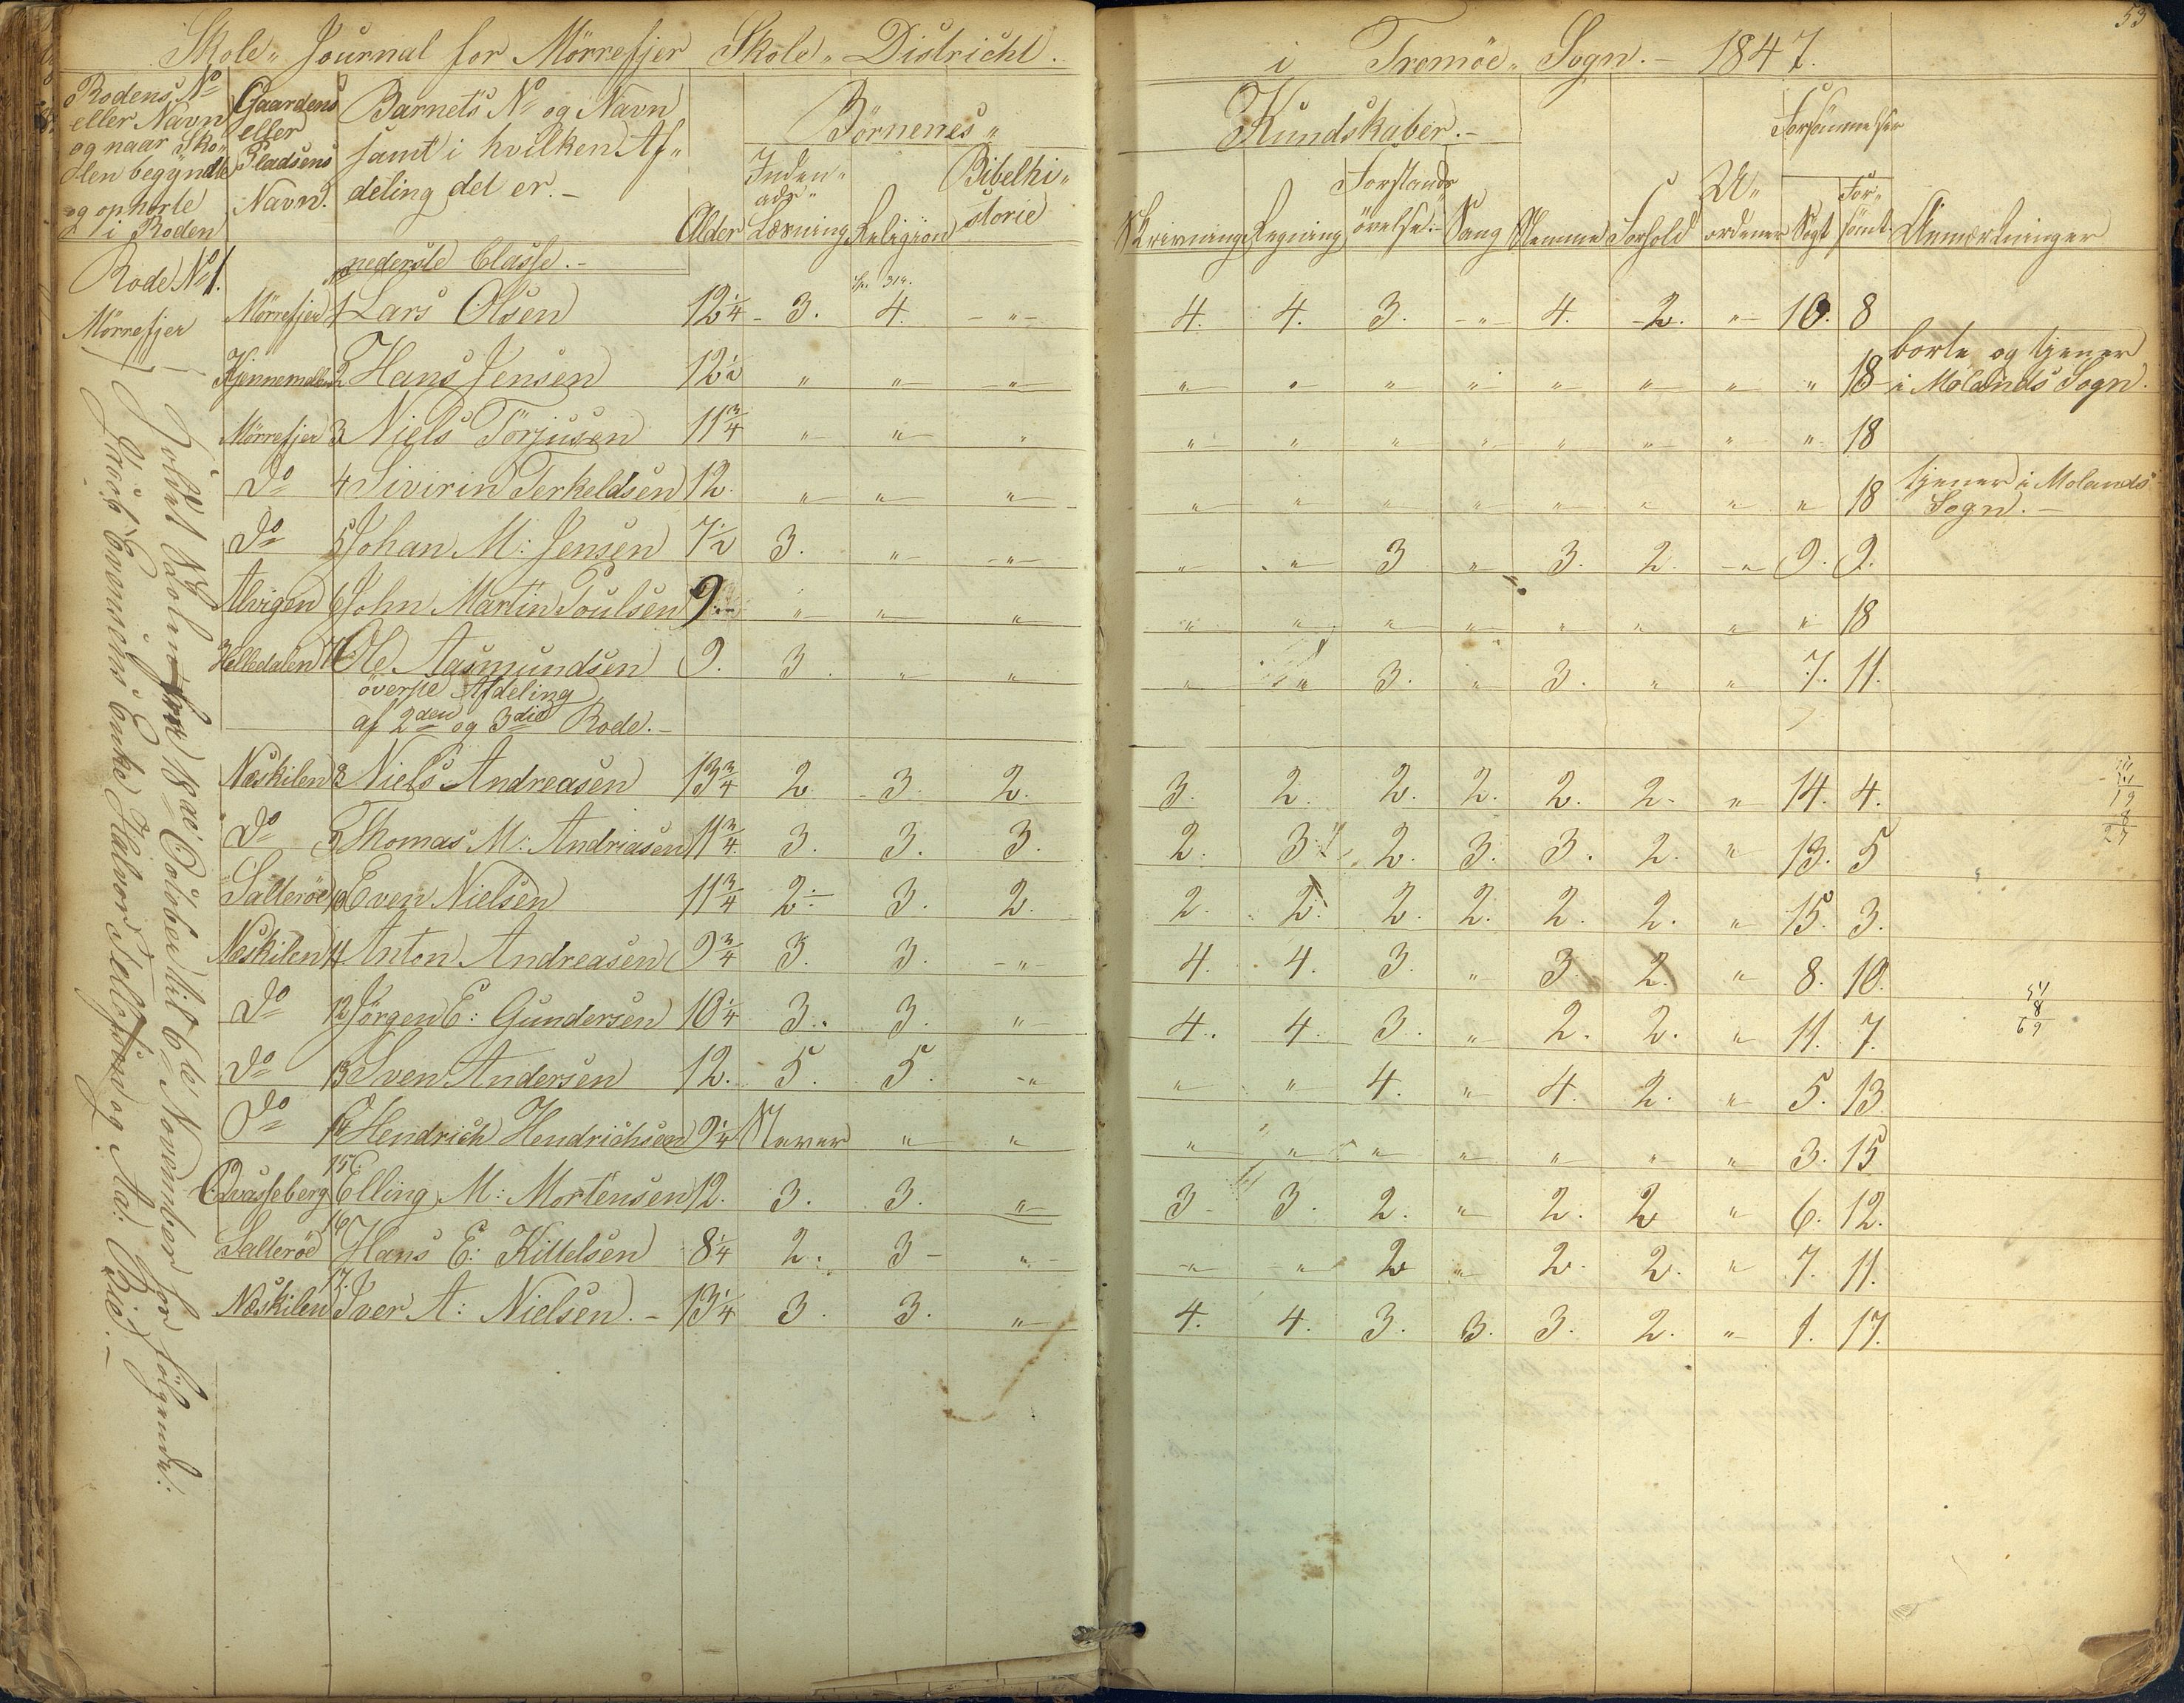 Skole„ Journal for Mörrefjer Skole„ Districht.
i Tromöe„ Sogn.- 1847.
53
Rodens No
eller Navn
og naar Sko„
len begyndte
og ophörte
i Roden
Gaardens
eller
Pladsens
Navn.
Barnets No og Navn
samt i hvilken Af„
deling det er.-
Alder
Börnenes„
Inden„
ads„
Læsning
Religion
Bibelhi„
storie
Kundskaber.-
Skrivning
Regning
Forstands
övelse.-
Sang
Stemme
Forhold
U„
ordener
Forsömmelser
Sögt
For„
sömt.
Anmærkninger
Rode No 1.
Mörrefjer
nederste Classe.-
Mörrefjer 1 Lars Olsen 12¼ 3. 4. „ 4. 4. 3. „ 4. 2. „ 10. 8
Kjennemellen 2 Hans Jensen 12½ „ „ „ „ „ „ „ „ „ „ „ 18 borte og tjener
i Molands Sogn.
Mörrefjer 3 Niels Törjusen 11¾ „ „ „ „ „ „ „ „ „ „ „ 18
Do 4 Sivirin Terkeldsen 12. „ „ „ „ „ „ „ „ „ „ „ 18 tjener i Molands
Sogn.-
Do 5 Johan M: Jensen 7½ 3. „ „ „ „ 3 „ 3. 2. „ 9. 9.
Alvigen 6 John Martin Poulsen 9.- „ „ „ „ „ „ „ „ „ „ „ 18
Helledalen 7 Ole Aasmundsen 9. 3 „ „ „ „ 3. „ 3. „ „ 7. 11.
överste Afdeling
af 2den og 3die Rode.-
Næskilen 8 Niels Andreasen 13¾ 2 3. 2. 3. 2. 2. 2. 2. 2. „ 14. 4.
Do 9 Thomas M: Andriasen 11¾ 3. 3. 3. 2. 3. 2. 3. 3. 2. „ 13. 5
Salteröe 10 Even Nielsen 11¾ 2.- 3. 2. 2. 2. 2. 2. 2. 2. „ 15. 3.
Næskilen 11 Anton Andreasen 9¾ 3. 3. „ 4. 4. 3. „ 3. 2. „ 8. 10.
Do 12 Jörgen E: Gundersen 10¼ 3. 3. „ 4. 4. 3. „ 2. 2. „ 11. 7.
Do 13 Sven Andersen 12. 5. 5. „ „ „ 4. „ 4. 2. „ 5. 13
Do 14 Hendrich Hendrichsen 9¼ Staver „ „ „ „ „ „ „ „ „ 3. 15
Qvasseberg 15 Elling M: Mortensen 12. 3. 3. „ 3 3. 2. „ 2. 2 „ 6. 12.
Salteröe 16 Hans E: Kittelsen 8¼ 2. 3- „ „ „ 2 „ 2. 2. „ 7. 11.
Næskilen 17. Iver A: Nielsen.- 13¼ 3. 3. „ 4. 4. 3. 3. 3. 2. „ 1. 17.
Holdt Skolen fra 18de October til 6te November hos fölgende:
Jacob Evensens Enke Halvor Tellefsen og Ad: Bie.-